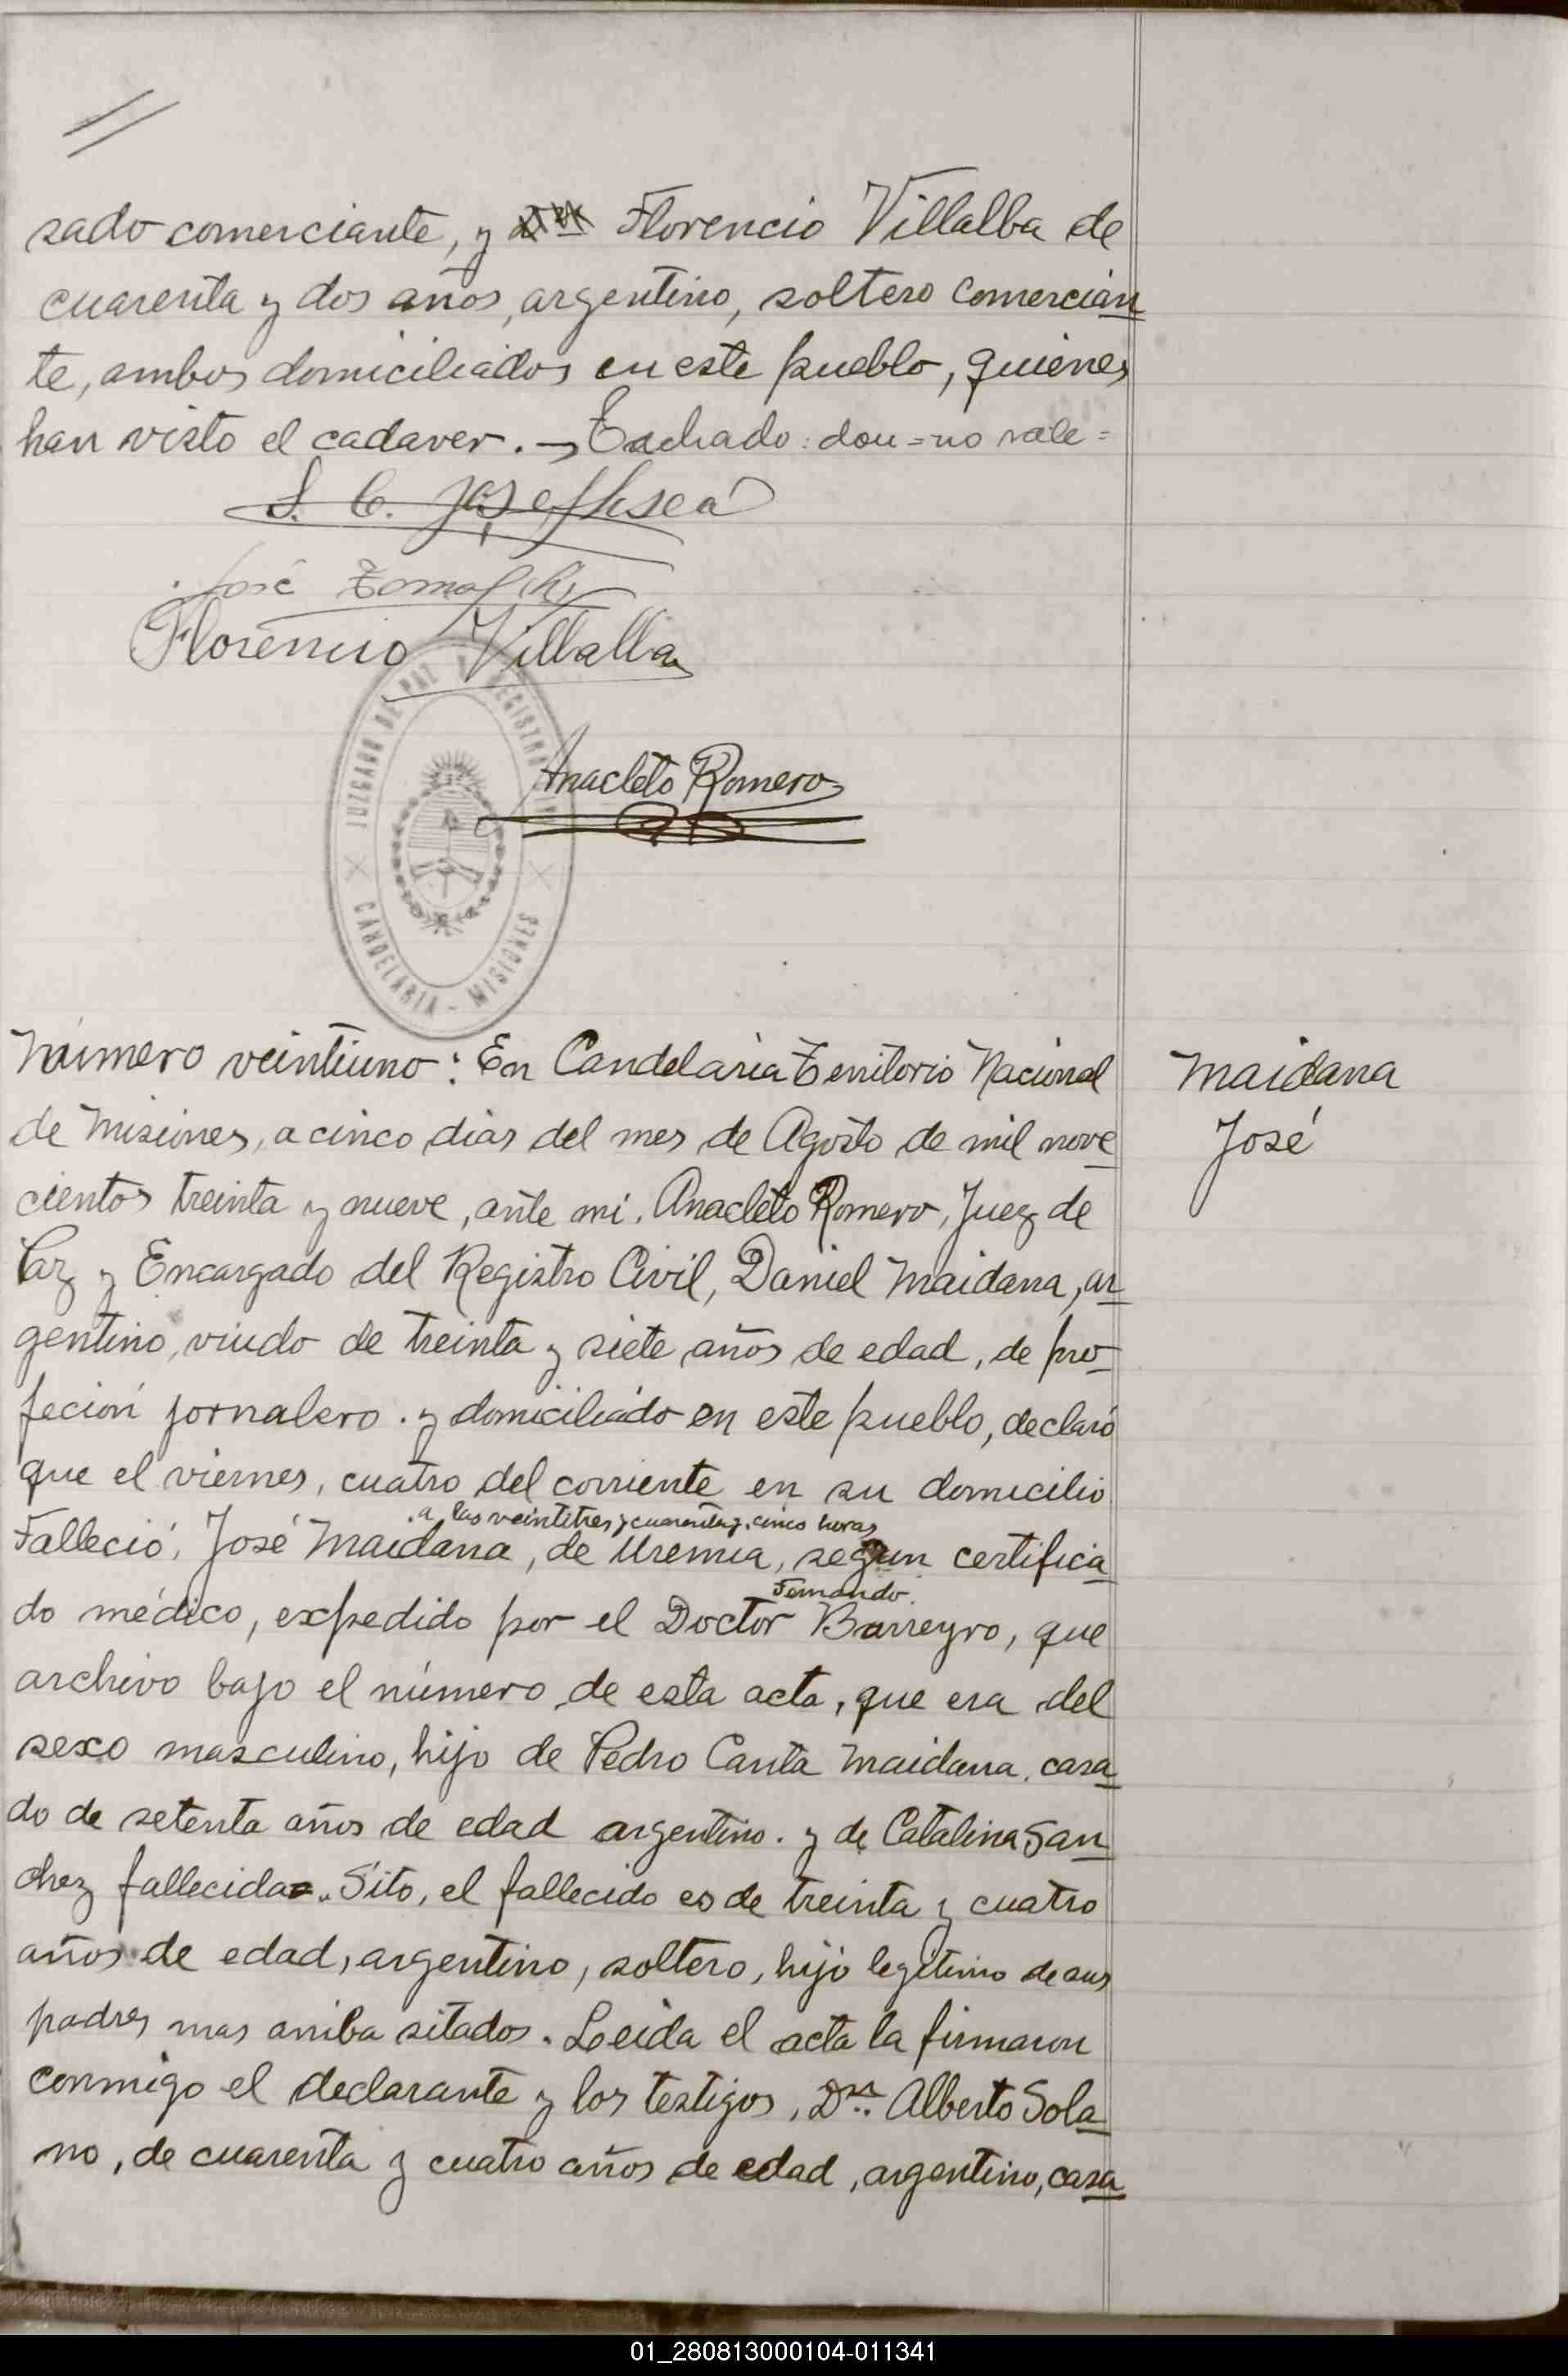 sado comerciante, y Florencio Villalba de
cuarenta y dos años, argentino, soltero comercian
te, ambos domiciliados en este pueblo, quienes
han visto el cadaver. — Tachado: don = no vale =
José
Florencio Villalba
JUZGADO DE PAZ Y REGISTRO CIVIL
CANDELARIA - MISIONES
Anacleto Romero
Número veintiuno: En Candelaria Territorio Nacional
Maidana
José
de Misiones, a cinco dias del mes de Agosto de mil nove
cientos treinta y nueve, ante mi, Anacleto Romero, Juez de
Paz y Encargado del Registro Civil, Daniel Maidana, ar
gentino, viudo de treinta y siete años de edad, de pro
feción jornalero. y domiciliado en este pueblo, declaró
que el viernes, cuatro del corriente en su domicilio
a las veintitres y cuarenta y cinco horas
Falleció, José Maidana, de Uremia, segun certifica
Fernando
do médico, expedido por el Doctor Barreyro, que
archivo bajo el número de esta acta, que era del
sexo masculino, hijo de Pedro Canta Maidana, casa
do de setenta años de edad argentino. y de Catalina San
chez fallecida. Sito, el fallecido es de treinta y cuatro
años de edad, argentino, soltero, hijo legitimo de sus
padres mas arriba sitados. Leida el acta la firmaron
conmigo el declarante y los testigos, Dn. Alberto Sola
no, de cuarenta y cuatro años de edad, argentino, casa
01_280813000104-011341